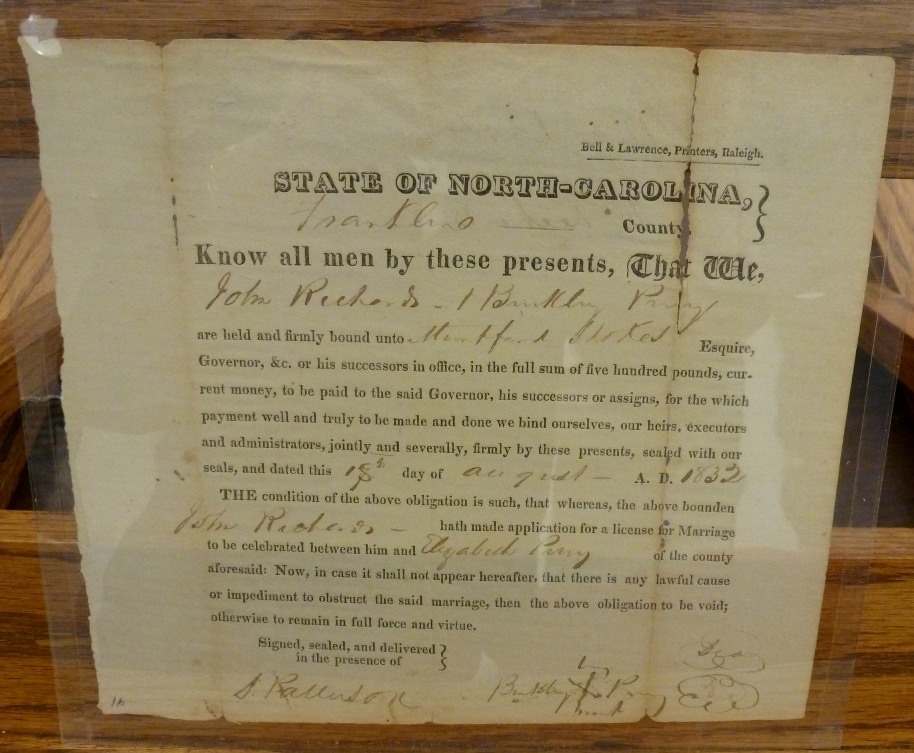 Bell & Lawrence, Printers, Raleigh.
STATE OF NORTH-CAROLINA,
Franklin County.
Know all men by these presents, That We,
John Richards - & Binkley Perry
are held and firmly bound unto Montford Stokes Esquire,
Governor, &c. or his successors in office, in the full sum of five hundred pounds, cur-
rent money, to be paid to the said Governor, his successors or assigns, for the which
payment well and truly to be made and done we bind ourselves, our heirs, executors
and administrators, jointly and severally, firmly by these presents, sealed with our
seals, and dated this 18th day of august - A. D. 1832
THE condition of the above obligation is such, that whereas, the above bounden
John Richards - hath made application for a license for Marriage
to be celebrated between him and Elizabeth Perry of the county
aforesaid: Now, in case it shall not appear hereafter, that there is any lawful cause
or impediment to obstruct the said marriage, then the above obligation to be void;
otherwise to remain in full force and virtue.
Signed, sealed, and delivered
in the presence of
S. Patterson Binkley Perry
mark